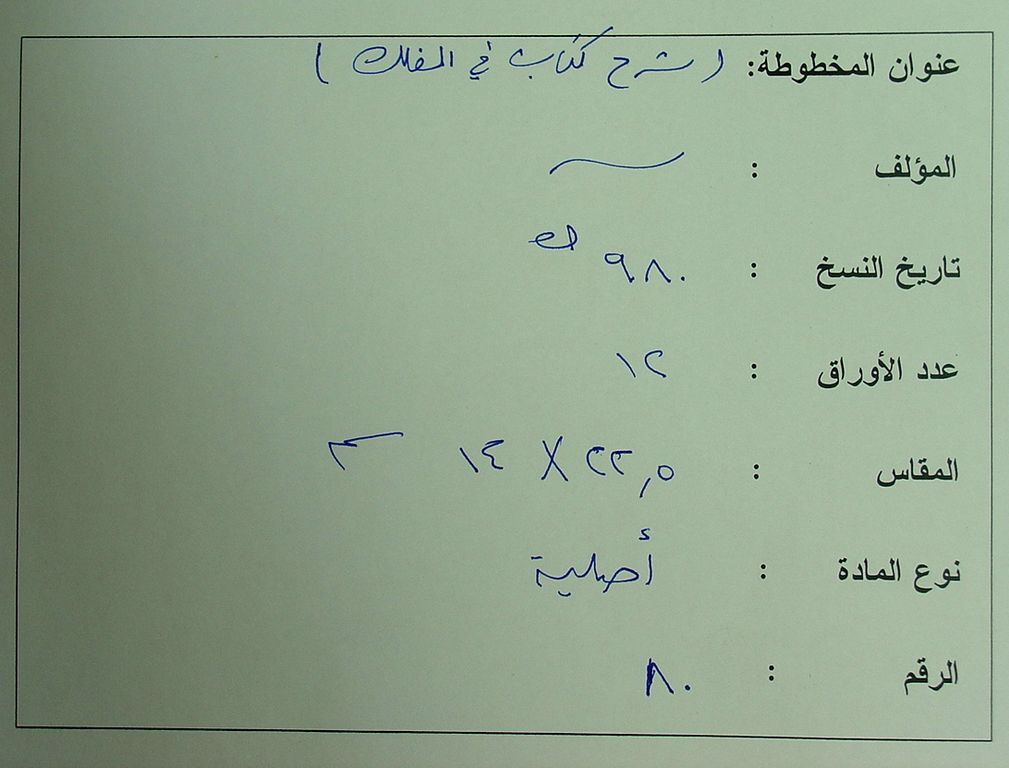 عنوان المخطوطة: (شرح كتاب في الفلك)
المؤلف :
تاريخ النسخ : ٩٨٠ هـ
عدد الأوراق : ١٢
المقاس : ٢٢,٥ X ١٤ سم
نوع المادة : أصلية
الرقم : ٨٠